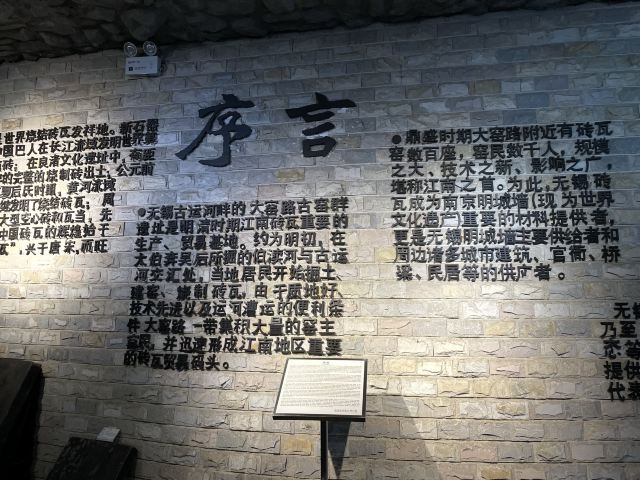 序言
世界烧结砖瓦发祥地。新石器
中国巴人在长江流域发明
砖。在良渚文化遗址中，
的烧制砖出土。公元前
时重，黄河流域
发明了烧结砖瓦，周
大型空心砖和瓦当，先
中国砖瓦的辉煌始于
，兴于唐宋，而旺
●无锡古运河畔的大窑路古窑群
遗址是明清时期江南砖瓦重要的
生产、贸易基地。约为明初，在
太伯奔吴后所掘的伯渎河与古运
河交汇处，当地居民开始掘土、
建窑、烧制砖瓦，由于质地好、
技术先进以及运河漕运的便利条
件大窑路一带集积大量的窑主
窑民，并迅速形成江南地区重要
的砖瓦贸易码头。
●鼎盛时期大窑路附近有砖瓦
窑数百座，窑民数千人，规模
之大、技术之新、影响之广，
堪称江南之首。为此，无锡砖
瓦成为南京明城墙(现为世界
文化遗产)重要的材料提供者，
更是无锡明城墙主要供给者和
周边诸多城市建筑、官衙、桥
梁、民居等的供产者。
无锡
乃至
态
提供
代表